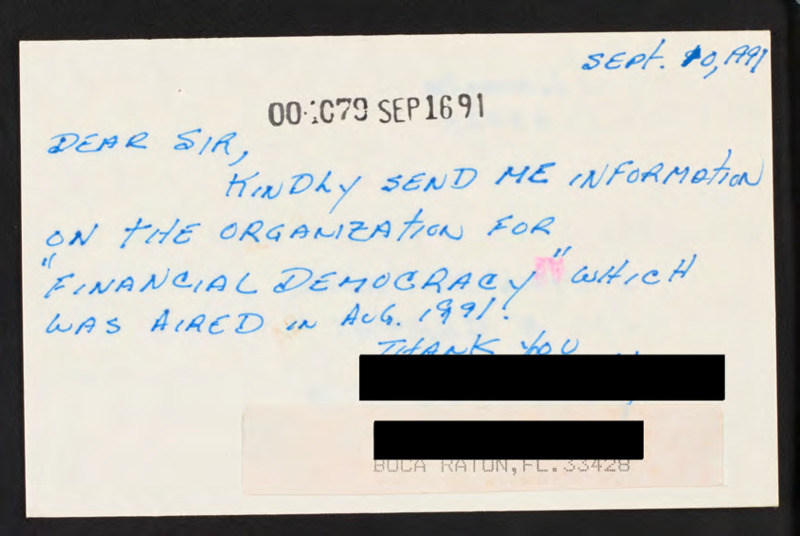 SEPT. 10, 1991
SEP 16 91
DEAR SIR,
KINDLY SEND ME INFORMATION
ON THE ORGANIZATION FOR
"FINANCIAL DEMOCRACY" WHICH
WAS AIRED IN AUG. 1991.
THANK YOU
BOCA RATON, FL. 33428